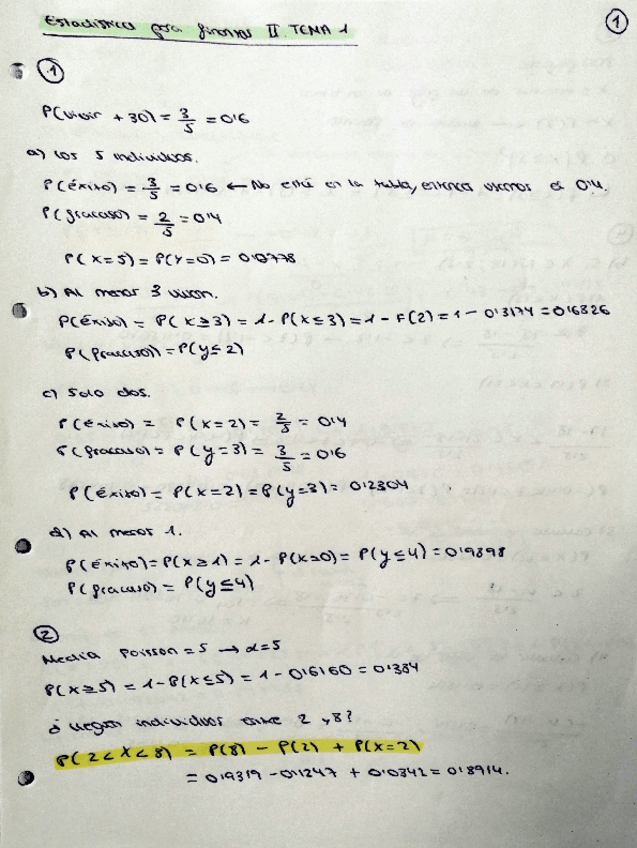 Estadística para finanzas II. TEMA 1
1
1
P(vivir +30) = 3/5 = 0'6
a) Los 5 individuos.
P(éxito) = 3/5 = 0'6 ← No está en la tabla, entonces usamos el 0'4.
P(fracaso) = 2/5 = 0'4
P(X=5) = P(Y=0) = 0'0778
b) Al menos 3 vivan.
P(éxito) = P(X≥3) = 1 - P(X≤3) = 1 - F(2) = 1 - 0'3174 = 0'6826
P(fracaso) = P(Y≤2)
c) Solo dos.
P(éxito) = P(X=2) = 2/5 = 0'4
P(fracaso) = P(Y=3) = 3/5 = 0'6
P(éxito) = P(X=2) = P(Y=3) = 0'2304
d) Al menos 1.
P(éxito) = P(X≥1) = 1 - P(X=0) = P(Y≤4) = 0'9898
P(fracaso) = P(Y≤4)
2
Media Poisson = 5 → λ=5
P(X≥5) = 1 - P(X≤5) = 1 - 0'6160 = 0'384
¿ llegan individuos entre 2 y 8?
P(2<X<8) = P(8) - P(2) + P(X=2)
= 0'9319 - 0'1247 + 0'0842 = 0'8914.